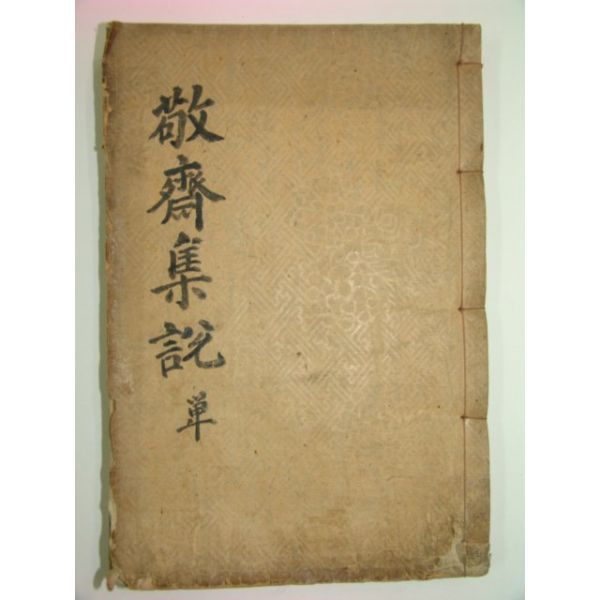 敬齋集說
単